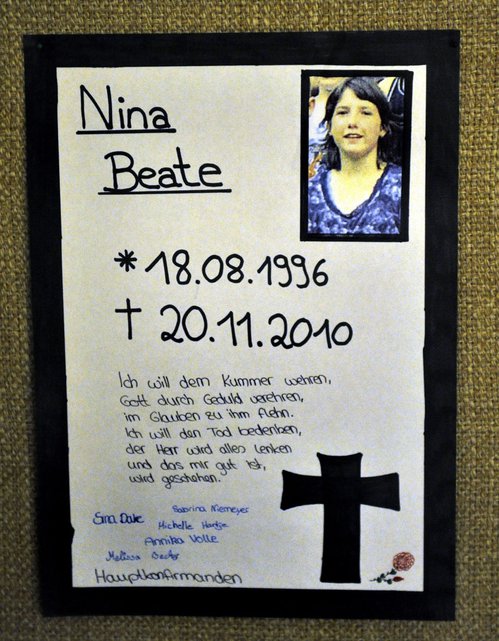 Nina
Beate
* 18.08.1996
† 20.11.2010
Ich will dem Kummer wehren,
Gott durch Geduld verehren,
im Glauben zu ihm flehn.
Ich will den Tod bedenken,
der Herr wird alles lenken
und das mir gut ist,
wird geschehen.
Sabrina Niemeyer
Sina
Michelle
Annika Volle
Melissa
Hauptkonfirmanden